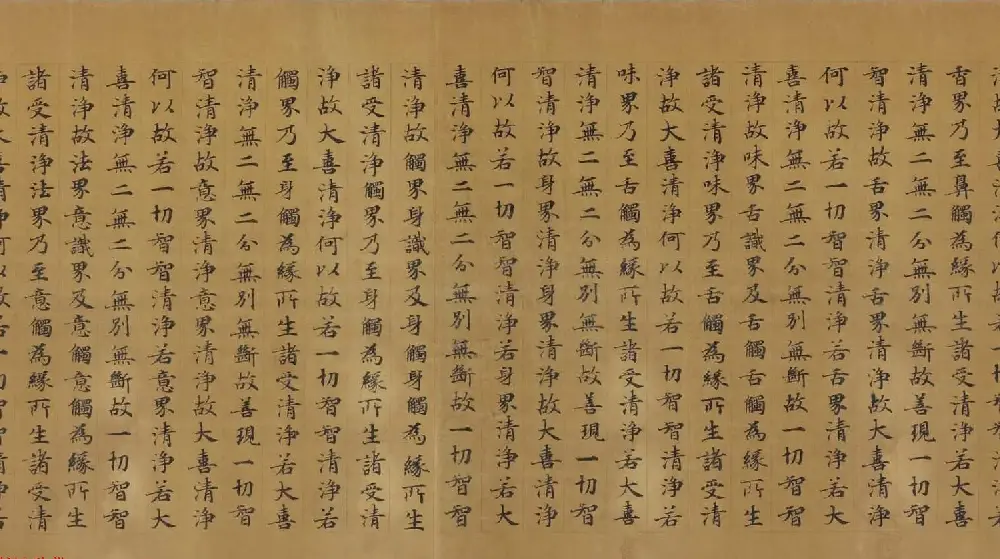 香界乃至鼻觸為緣所生諸受清淨若大喜
清淨無二無二分無別無斷故善現一切智
智清淨故舌界清淨舌界清淨故大喜清淨
何以故若一切智智清淨若舌界清淨若大
喜清淨無二無二分無別無斷故一切智智
清淨故味界舌識界及舌觸舌觸為緣所生
諸受清淨味界乃至舌觸為緣所生諸受清
淨故大喜清淨何以故若一切智智清淨若
味界乃至舌觸為緣所生諸受清淨若大喜
清淨無二無二分無別無斷故善現一切智
智清淨故身界清淨身界清淨故大喜清淨
何以故若一切智智清淨若身界清淨若大
喜清淨無二無二分無別無斷故一切智智
清淨故觸界身識界及身觸身觸為緣所生
諸受清淨觸界乃至身觸為緣所生諸受清
淨故大喜清淨何以故若一切智智清淨若
觸界乃至身觸為緣所生諸受清淨若大喜
清淨無二無二分無別無斷故善現一切智
智清淨故意界清淨意界清淨故大喜清淨
何以故若一切智智清淨若意界清淨若大
喜清淨無二無二分無別無斷故一切智智
清淨故法界意識界及意觸意觸為緣所生
諸受清淨法界乃至意觸為緣所生諸受清